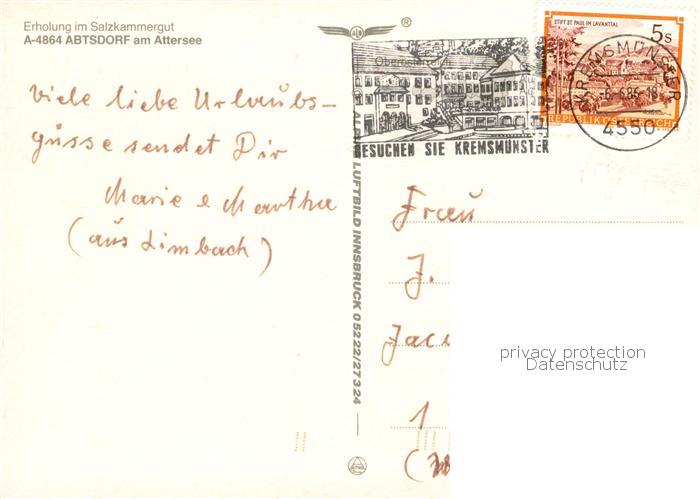 Erholung im Salzkammergut
A-4864 ABTSDORF am Attersee
Viele liebe Urlaubs-
güsse sendet Dir
Marie e Martha
(aus Limbach)
ALPINE LUFTBILD INNSBRUCK 05222/27324
®
Oberösterreich
BESUCHEN SIE KREMSMÜNSTER
STIFT ST. PAUL IM LAVANTTAL
5s
REPUBLIK ÖSTERREICH
KREMSMÜNSTER
-6.6.85-18
4550
Frau
J.
1
privacy protection
Datenschutz